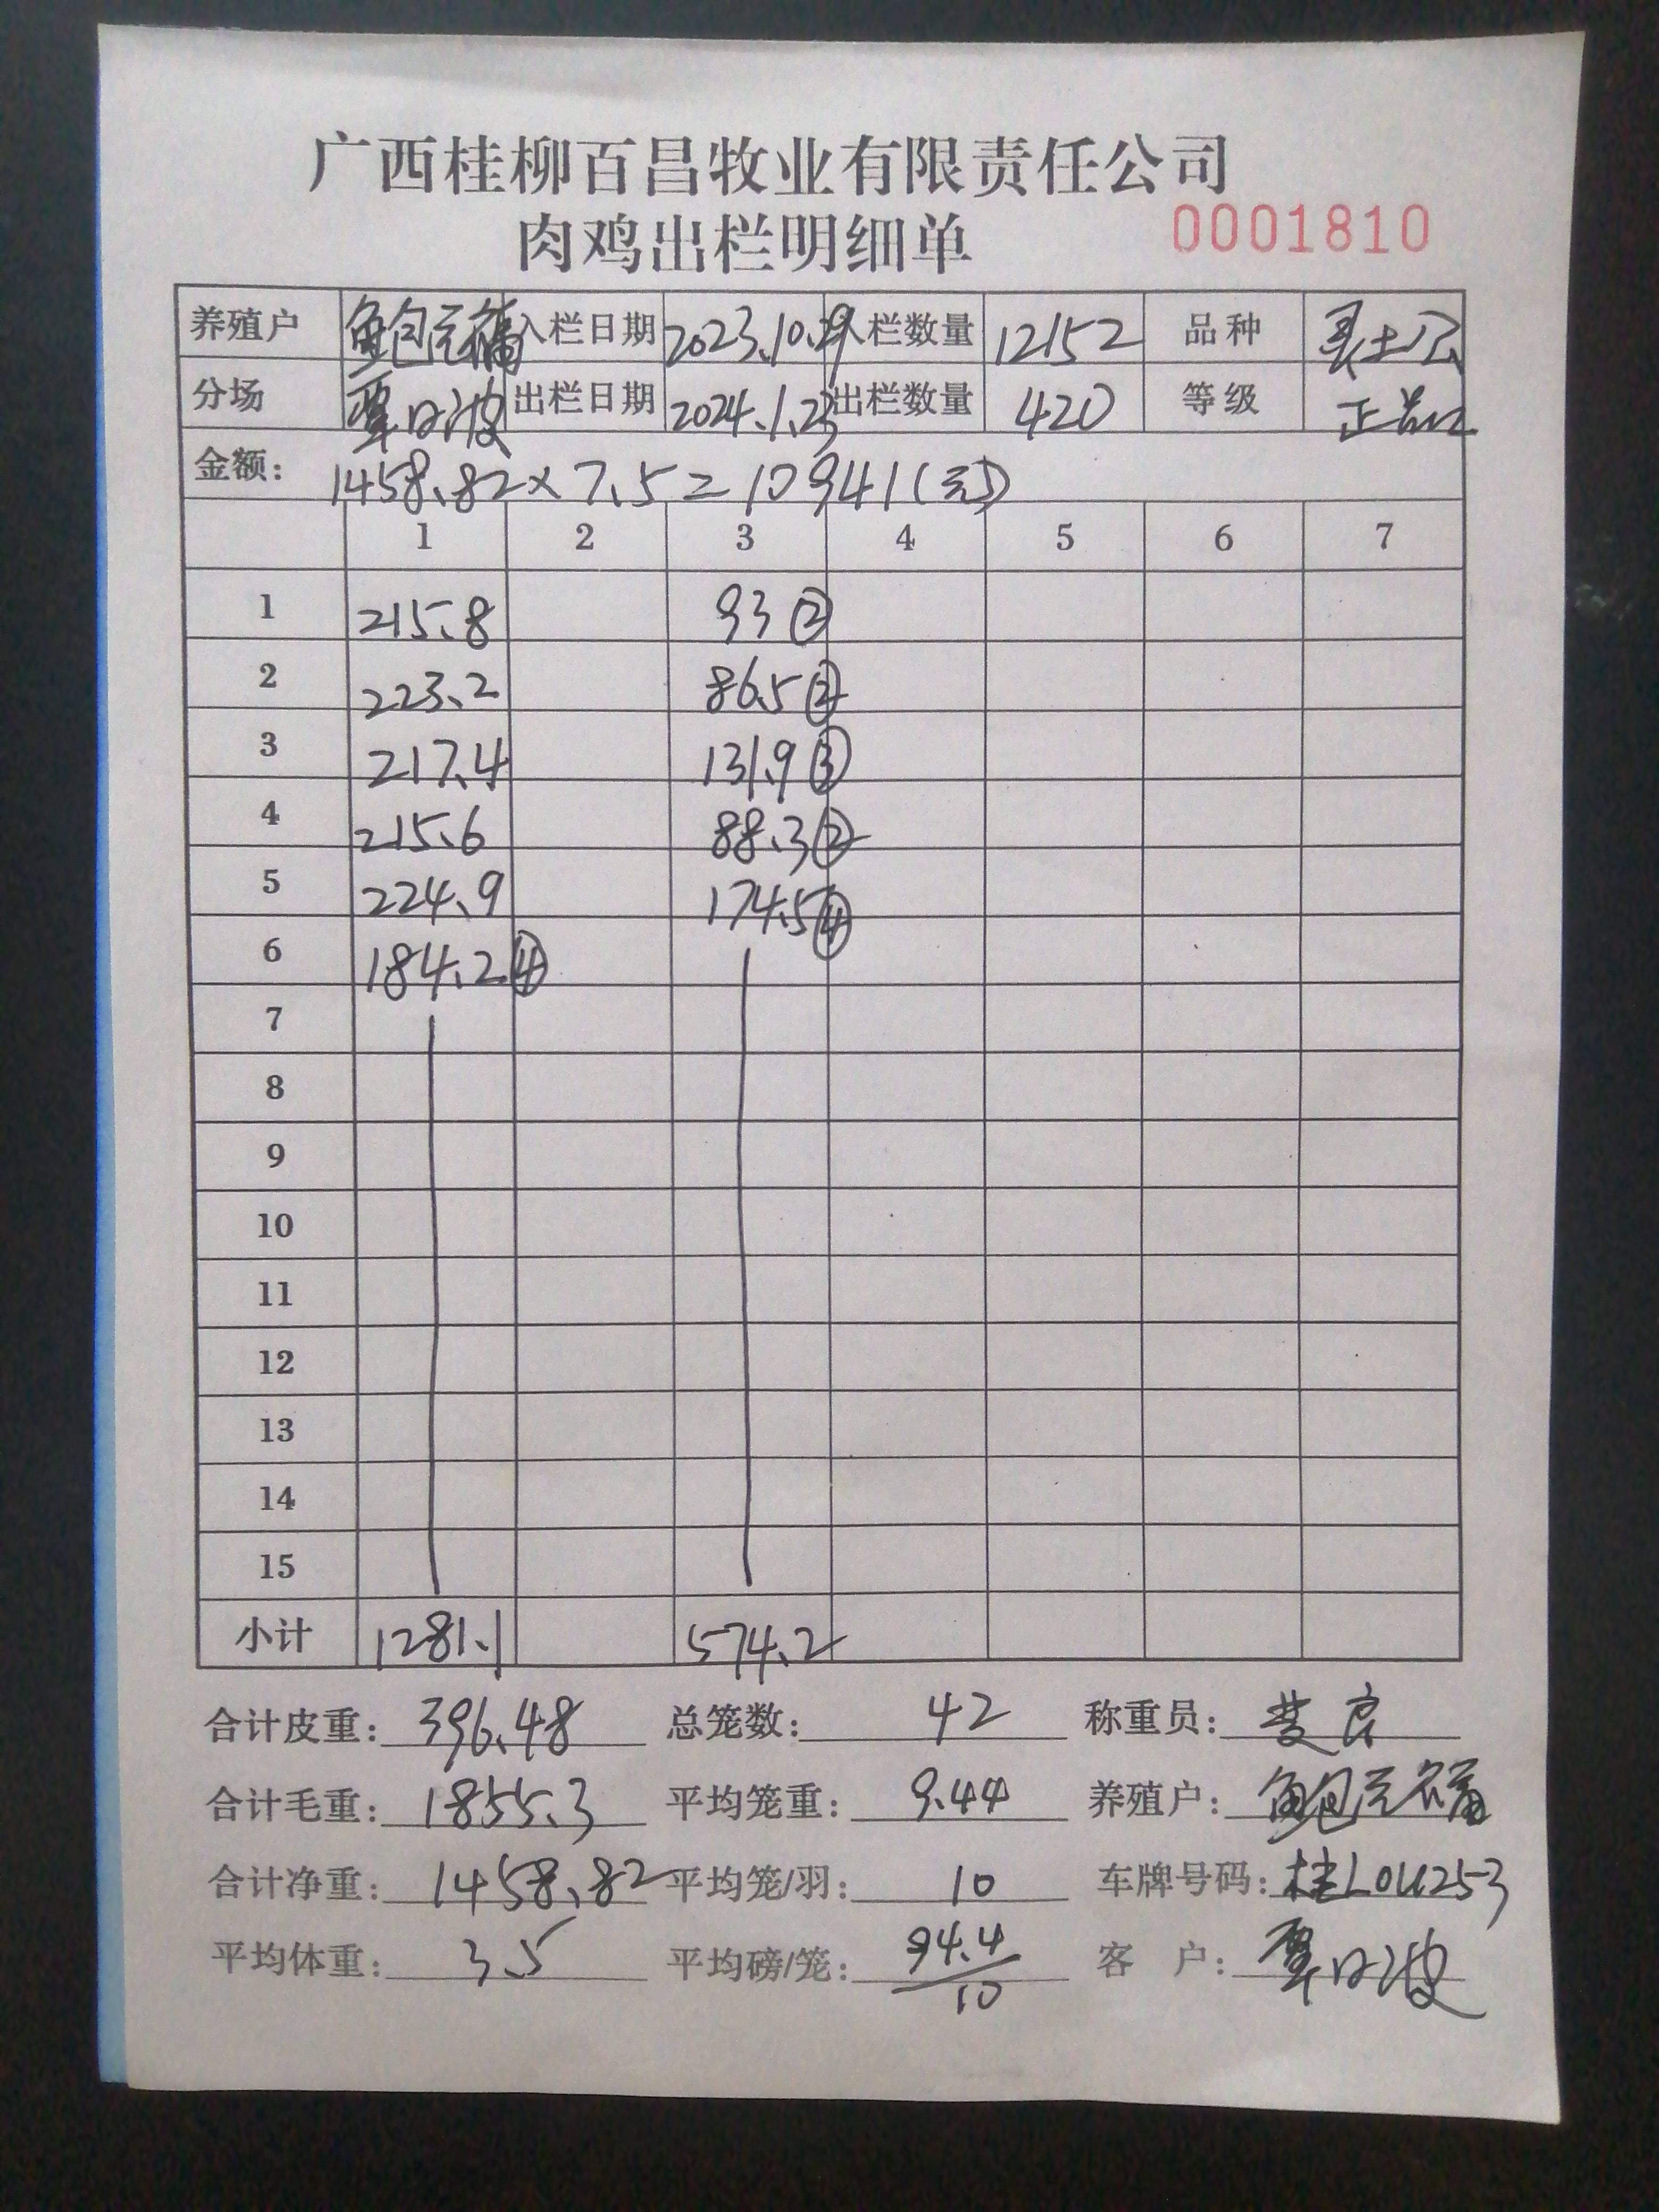 广西桂柳百昌牧业有限责任公司
肉鸡出栏明细单 0001810
养殖户 鲍元福 入栏日期 2023.10.29 入栏数量 12152 品种 土公
分场 覃日波 出栏日期 2024.1.23 出栏数量 420 等级 正品
金额: 1458.82×7.5=10941(元)
1 2 3 4 5 6 7
1 215.8 93②
2 223.2 86.5②
3 217.4 131.9③
4 215.6 88.3②
5 224.9 174.5④
6 184.2④
7
8
9
10
11
12
13
14
15
小计 1281.1 574.2
合计皮重: 396.48 总笼数: 42 称重员:
合计毛重: 1855.3 平均笼重: 9.44 养殖户: 鲍元福
合计净重: 1458.82 平均笼/羽: 10 车牌号码: 桂L0U253
平均体重: 3.5 平均磅/笼: 94.4/10 客户: 覃日波